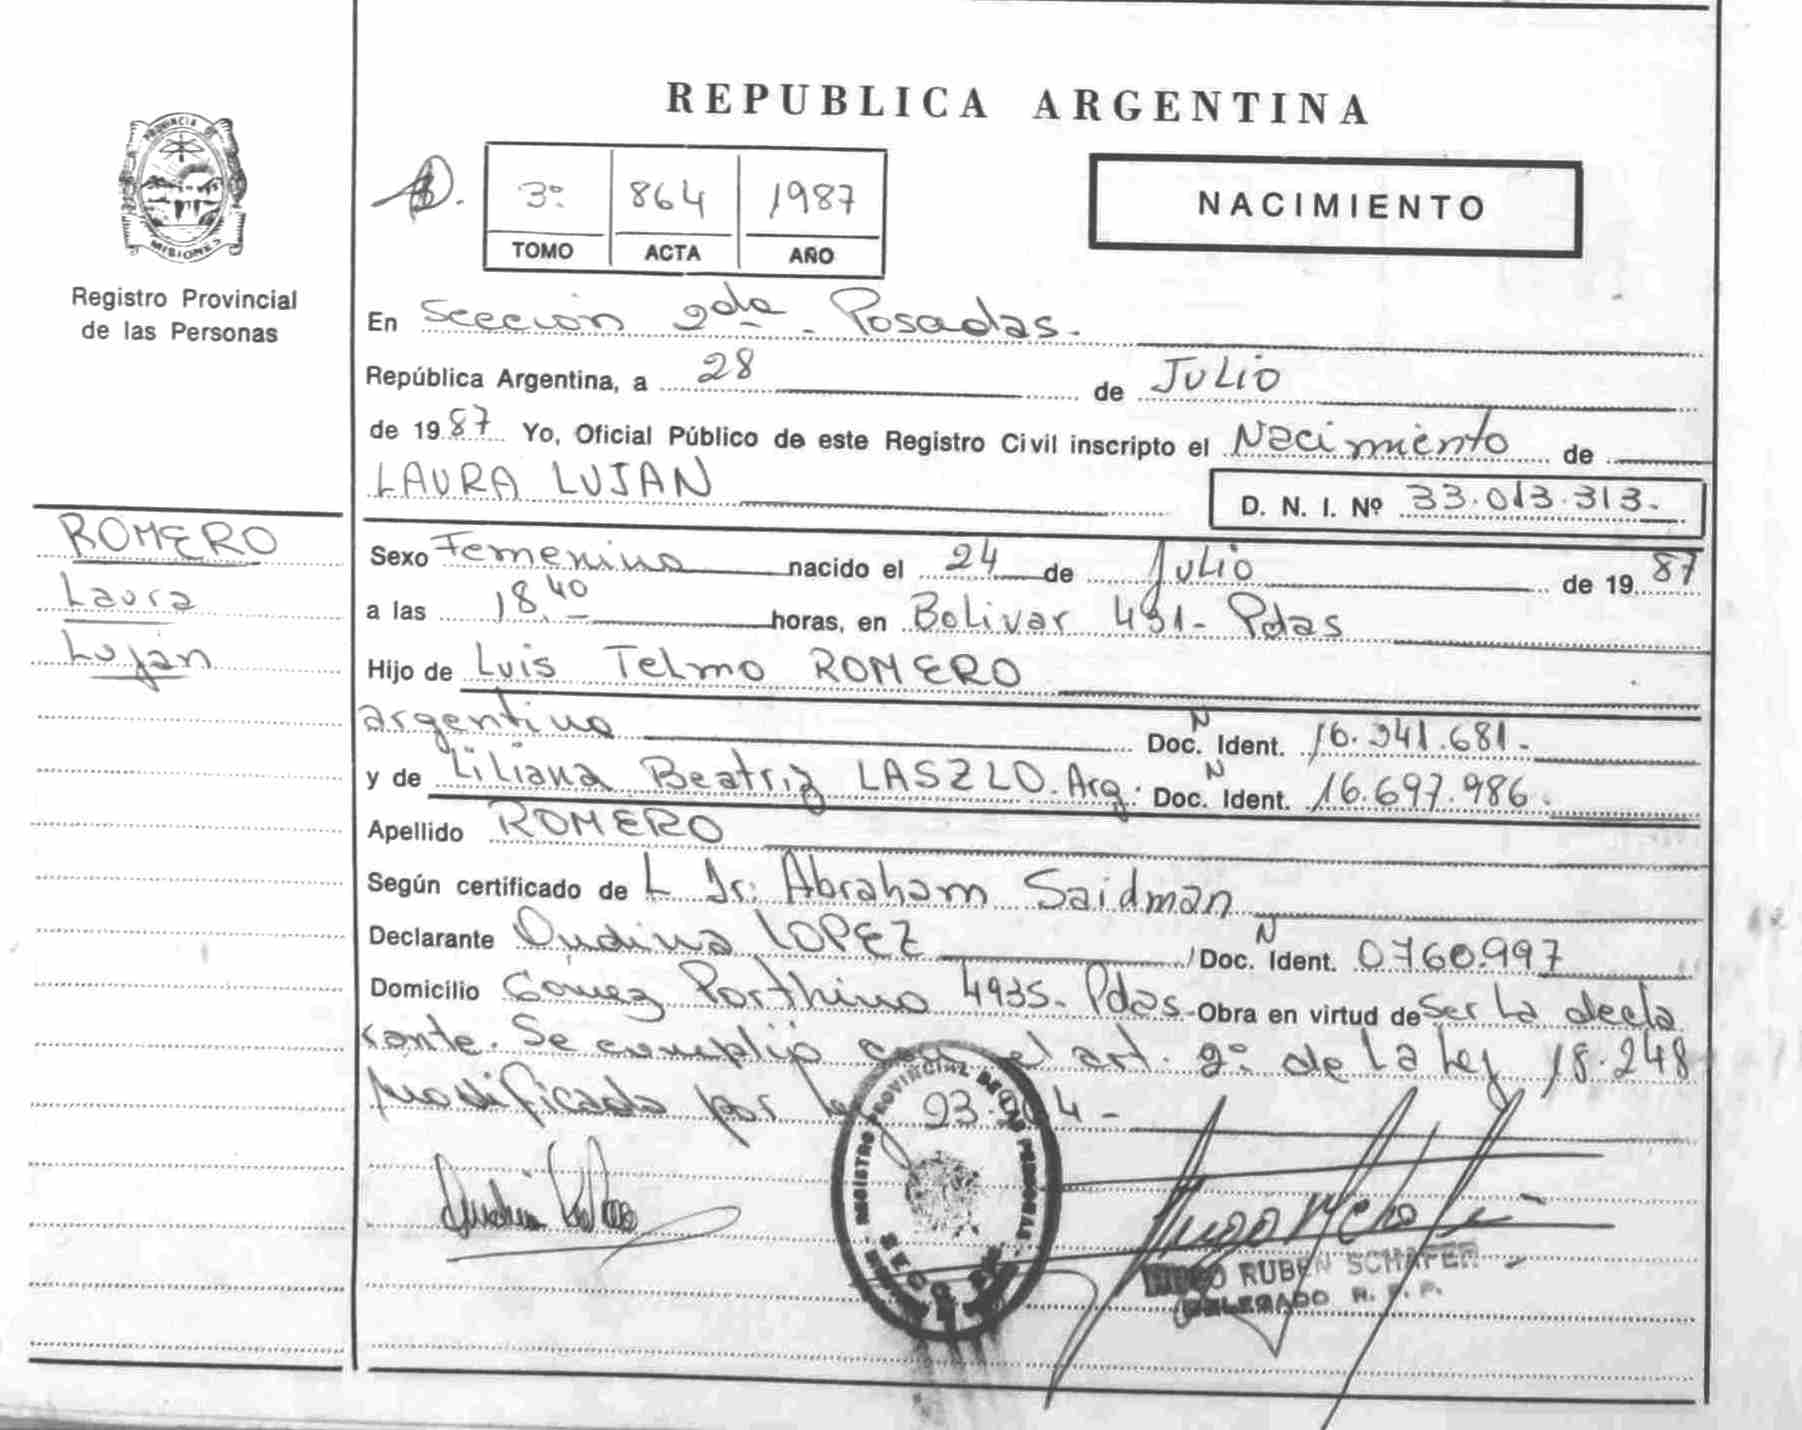 REPUBLICA ARGENTINA
PROVINCIA DE
MISIONES
Registro Provincial
de las Personas
3º 864 1987
TOMO ACTA AÑO
NACIMIENTO
En Sección 2da - Posadas.
República Argentina, a 28 de Julio
de 1987 Yo, Oficial Público de este Registro Civil inscripto el Nacimiento de
LAURA LUJAN
D. N. I. Nº 33.013.313.-
ROMERO
Laura
Luján
Sexo Femenino nacido el 24 de Julio de 1987
a las 18,40 horas, en Bolivar 431- Pdas
Hijo de Luis Telmo ROMERO
argentino Doc. N Ident. 16.341.681.-
y de Liliana Beatriz LASZLO. Arg: Doc. N Ident. 16.697.986.
Apellido ROMERO
Según certificado de L Dr: Abraham Saidman
Declarante Ondina LOPEZ Doc. N Ident. 0760997
Domicilio Gómez Porthino 4935- Pdas- Obra en virtud de ser la decla
rante. Se cumplió con el art. 2º de la Ley 18.248
Modificado por
REGISTRO PROVINCIAL DE LAS PERSONAS
RUBEN SCHAFER
DELEGADO R. P. P.